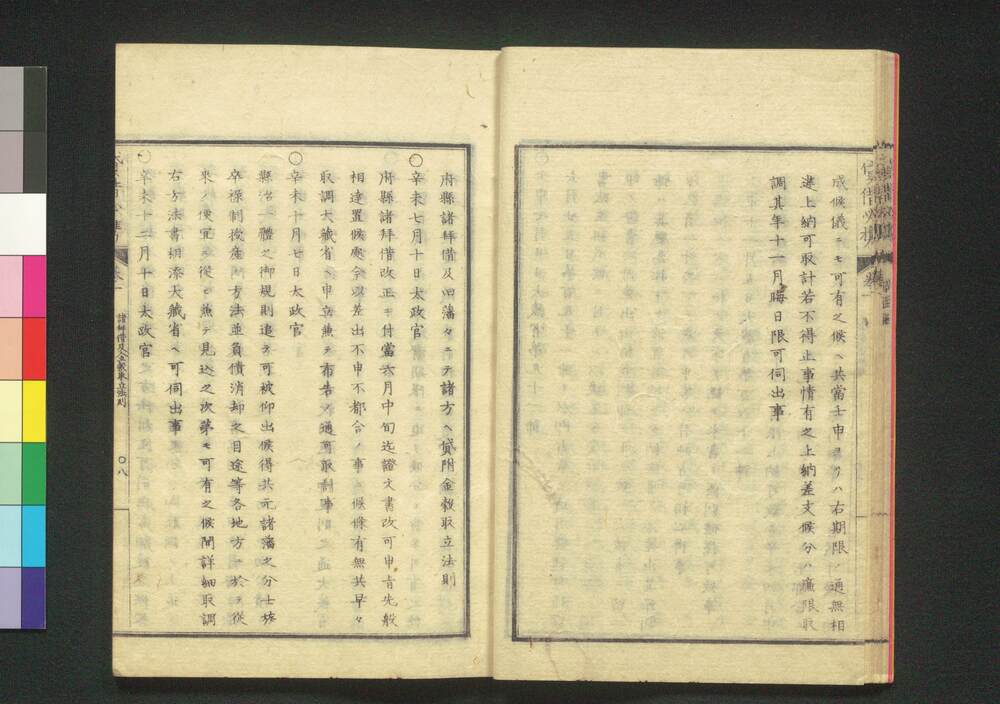 成候儀ニモ可有之候ヘ共當士申ヨリハ右期限ノ通無相
違上納可取計若不得止事情有之上納差支候分ハ廉限取
調其年十一月晦日限可伺出事
府縣諸拜借及旧藩々ニテ諸方ヘ貸附金穀取立法則
〇辛未七月十日太政官
府縣諸拜借改正ニ付當六月中旬迄證文書改可申旨先般
相達置候處今以差出不申不都合ノ事ニ候條有無共早々
取調大藏省ヘ申立兼テ布告ノ通可取計事
〇辛未十月七日太政官
縣治一體之御規則追テ可被仰出候得共元諸藩之分士族
卒祿制授産ノ方法並負債消却之目途等各地方ニ於テ從
來ノ便宜ニ從ヒ兼テ見込之次第モ可有之候間詳細取調
右方法書相添大藏省ヘ可伺出事
〇辛未十一月十日太政官
諸拜借及金穀取立法則
〇八